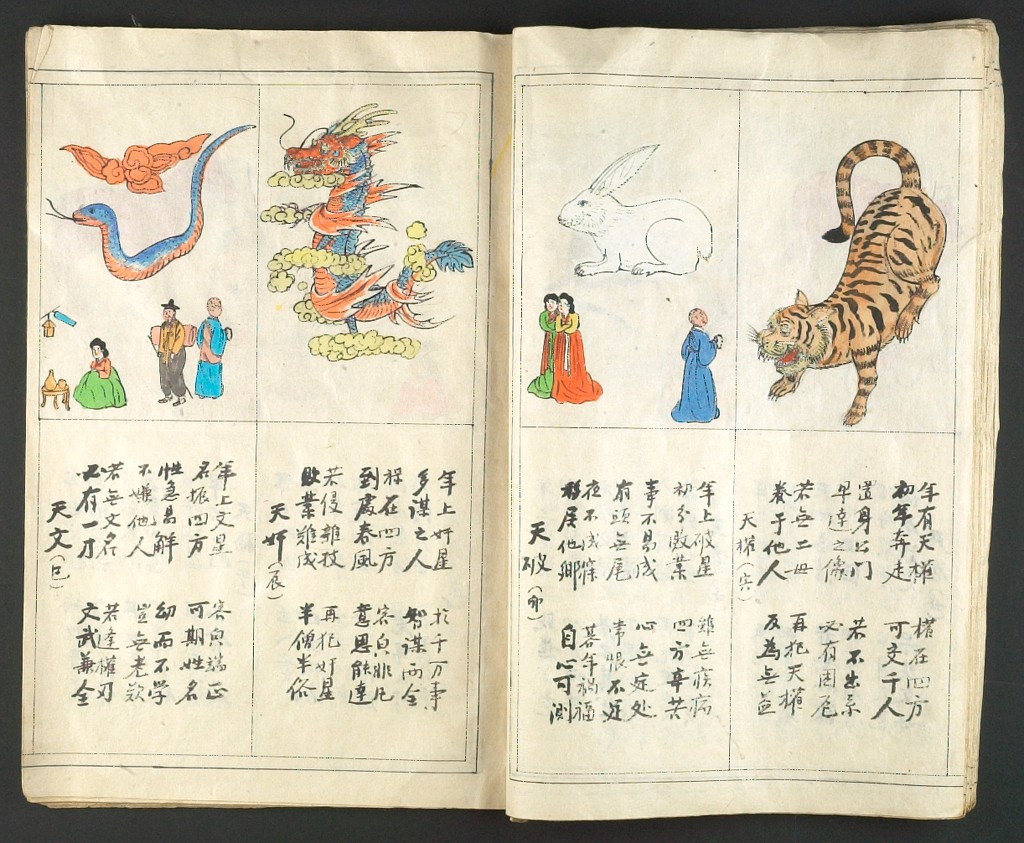 年有天權
初年奔走
置身出门
早達之像
若無二母
養于他人
天權(寅)
權在四方
可交千人
若不出系
必有困厄
再犯天權
反為無益
年上破星
初分敗業
事不易成
有頭無尾
夜不成
移居他鄉
天破(卯)
雖無疾病
四方辛苦
心無定处
常恨不足
暮年禍福
自心可測
年上奸星
多謀之人
祿在四方
到處春風
若侵雜技
敗業難成
天奸(辰)
於千万事
智謀两全
容皃非凡
意思能達
再犯奸星
半僧半俗
年上文星
名振四方
性急易解
不嫌他人
若無文名
必有一刀
天文(巳)
容皃端正
可期姓名
幼而不学
豈無老歎
若達權刃
文武兼全